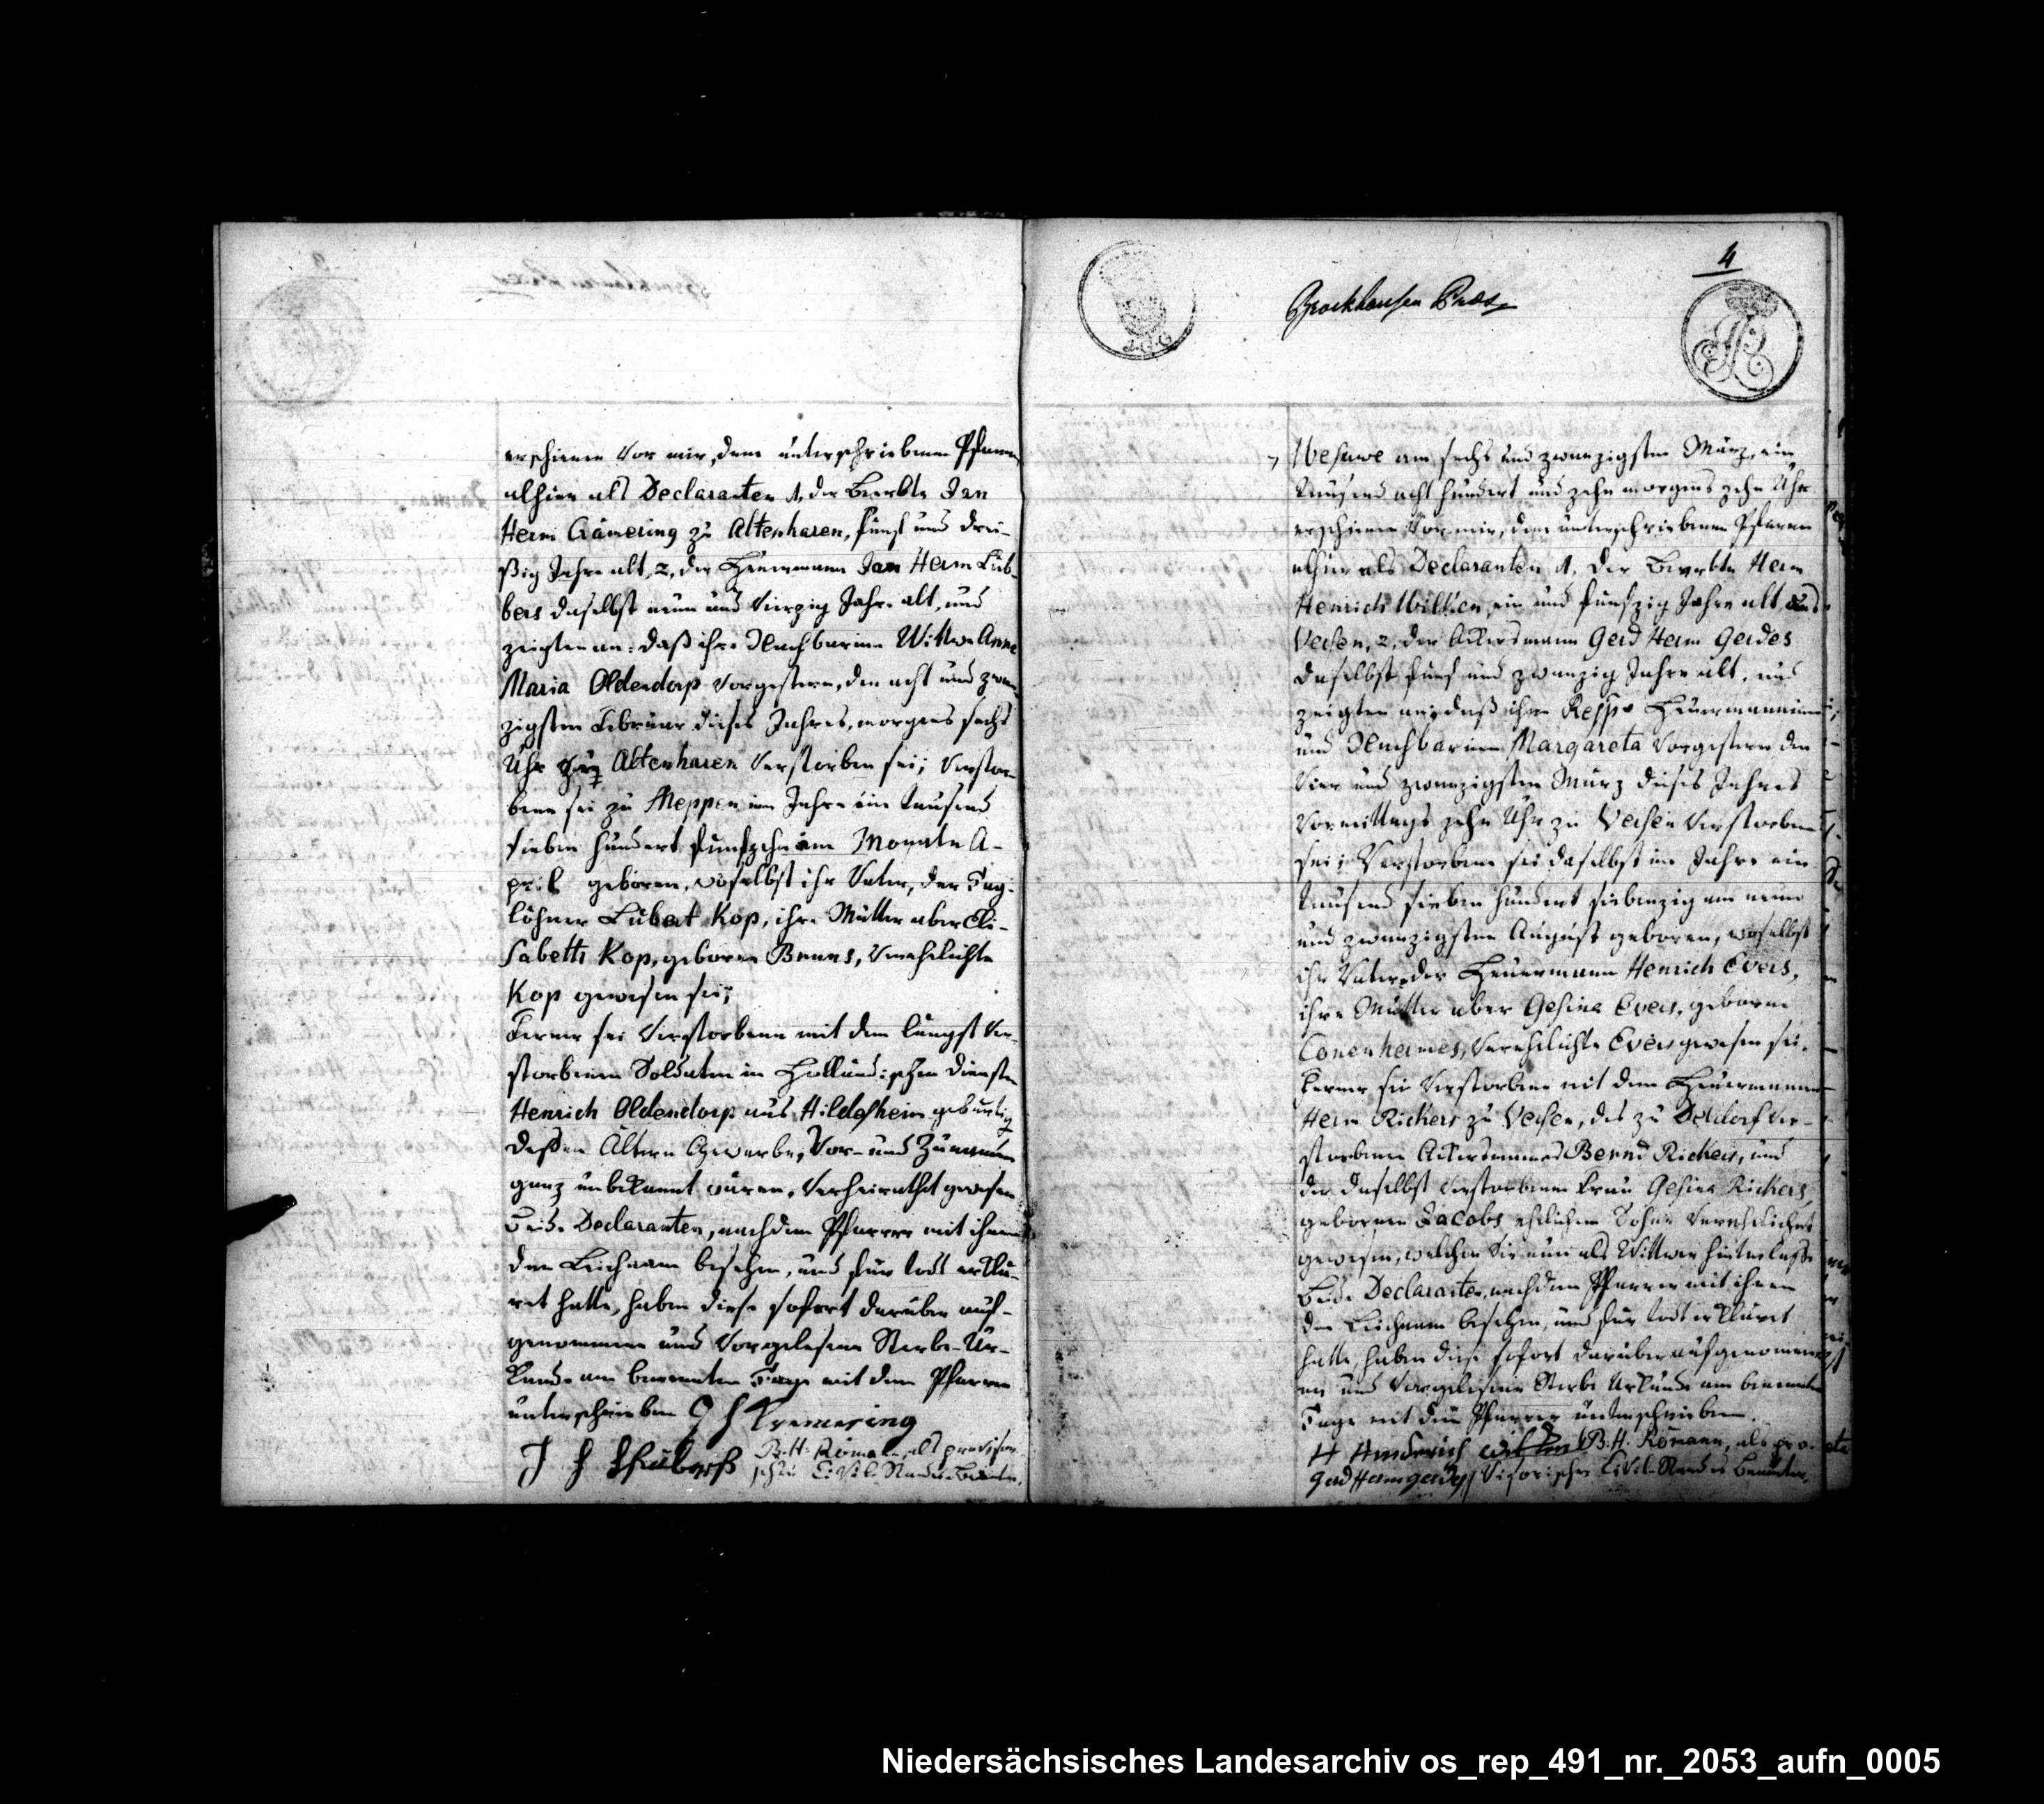 erschienen vor mir, dem unterschriebenen Pfarrer
alhier als Declaranten 1, der Beerbte Jan
Herm Crämering zu Altenharen, fünf und drei-
ßig Jahre alt, 2, der Heuermann Jan Herm Lüb-
bers daselbst neun und vierzig Jahre alt, und
zeigten an: daß ihre Nachbarinn Wittwe Anna
Maria Oldendorp vorgestern, den acht und zwan-
zigsten Februar dieses Jahres, morgens sechs
Uhr zu Altenharen verstorben sei; Verstor-
bene sei zu Meppen im Jahre ein tausend
sieben hundert funfzehn im Monate A-
pril geboren, woselbst ihr Vater, der Tag-
löhner Lübert Kop, ihre Mutter aber Eli-
sabeth Kop, geborne Bruns, verehelichte
Kop gewesen sei;
Ferner sei Verstorbene mit dem längst ver-
storbenen Soldaten in Holländischen Diensten
Henrich Oldendorp aus Hildesheim gebürtig
deßen Ältern Gewerbe, Vor- und Zunamen
ganz unbekannt wären, verheirathet gewesen
Beide Declaranten, nachdem Pfarrer mit ihnen
den Leichnam besehen, und für todt erklä-
ret hatte, haben diese sofort darüber auf-
genommene und vorgelesene Sterbe-Ur-
kunde am benannten Tage mit dem Pfarrer
unterschrieben J H Kremering
J H Lübers B. H. Römann, als provisor-
scher Civil-Standes Beamter.
4
Brockhausen Praes
7, Wesuwe am sechs und zwanzigsten März, ein
tausend acht hundert und zehn morgens zehn Uhr
erschienen vor mir, dem unterschriebenen Pfarrer
alhier als Declaranten 1. der Beerbte Herm
Henrich Wilken, ein und funfzig Jahre alt, aus
Versen, 2, der Ackersmann Gerd Herm Gerdes
daselbst fünf und zwanzig Jahre alt, und
zeigten an, daß ihre Resp. Heuermanninn
und Nachbarinn Margareta vorgestern den
vier und zwanzigsten März dieses Jahres
vormittags zehn Uhr zu Versen verstorben
sei; Verstorbene sei daselbst im Jahre ein
tausend sieben hundert siebenzig am neun
und zwanzigsten August geboren, woselbst
ihr Vater der Heuermann Henrich Evers,
ihre Mutter aber Gesina Evers, geborne
Conenhermes, verehelichte Evers gewesen sei.
Ferner sei Verstorbene mit dem Heuermanne
Herm Rickers zu Versen, des zu Deldorf ver-
storbenen Ackersmannes Bernd Rickers, und
der daselbst verstorbenen Frau Gesina Rickers,
gebornen Jacobs ehelichem Sohne verehelichet
gewesen, welchen Sie nun als Wittwer hinterlasse
Beide Declaranten, nachdem Pfarrer mit ihnen
den Leichnam besehen, und für todt erkläret
hatte, haben diese sofort darüber aufgenomme-
ne und vorgelesene Sterbe Urkunde am benannten
Tage mit dem Pfarrer unterschrieben.
H Hinderich wilken B. H. Römann, als pro-
Gerd Herm gerdes visorischer Civil-Standes Beamter.
Niedersächsisches Landesarchiv os_rep_491_nr._2053_aufn_0005